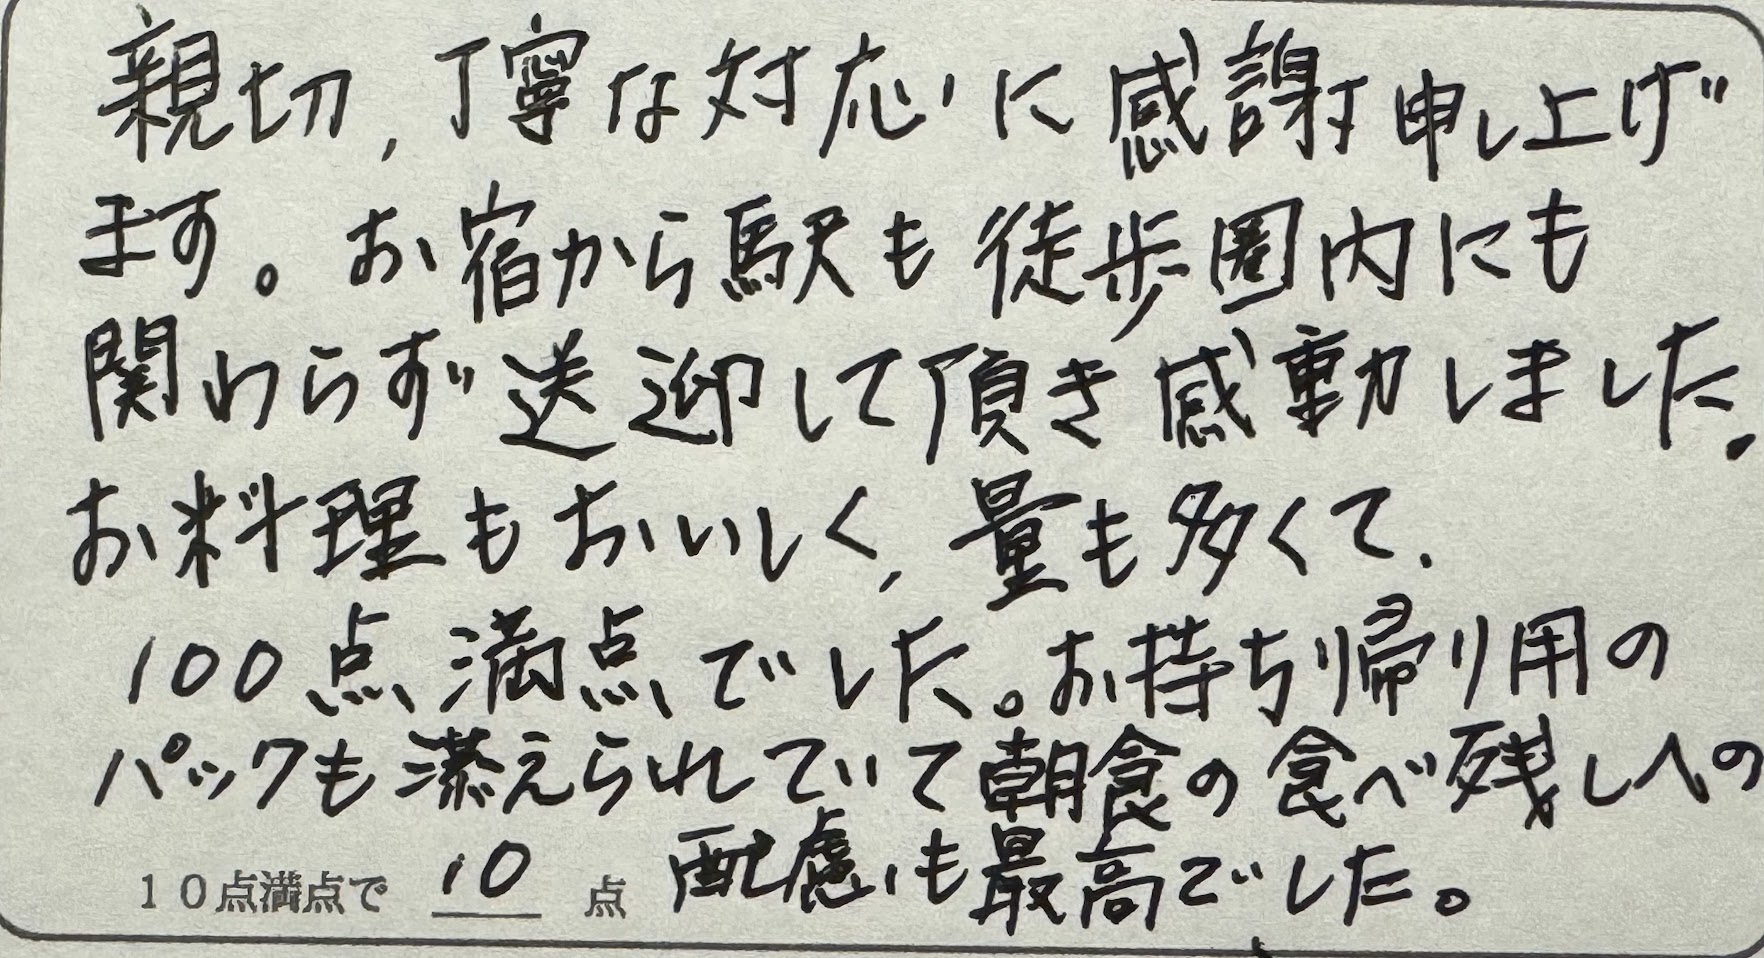 親切,丁寧な対応に感謝申し上げ
ます。お宿から駅も徒歩圏内にも
関わらず送迎して頂き感動しました.
お料理もおいしく,量も多くて.
100点満点でした。お持ち帰り用の
パックも添えられていて朝食の食べ残しへの
配慮も最高でした。
10点満点で 10 点